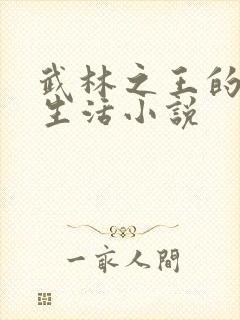 武林之王的
生活小説
一㐮人間